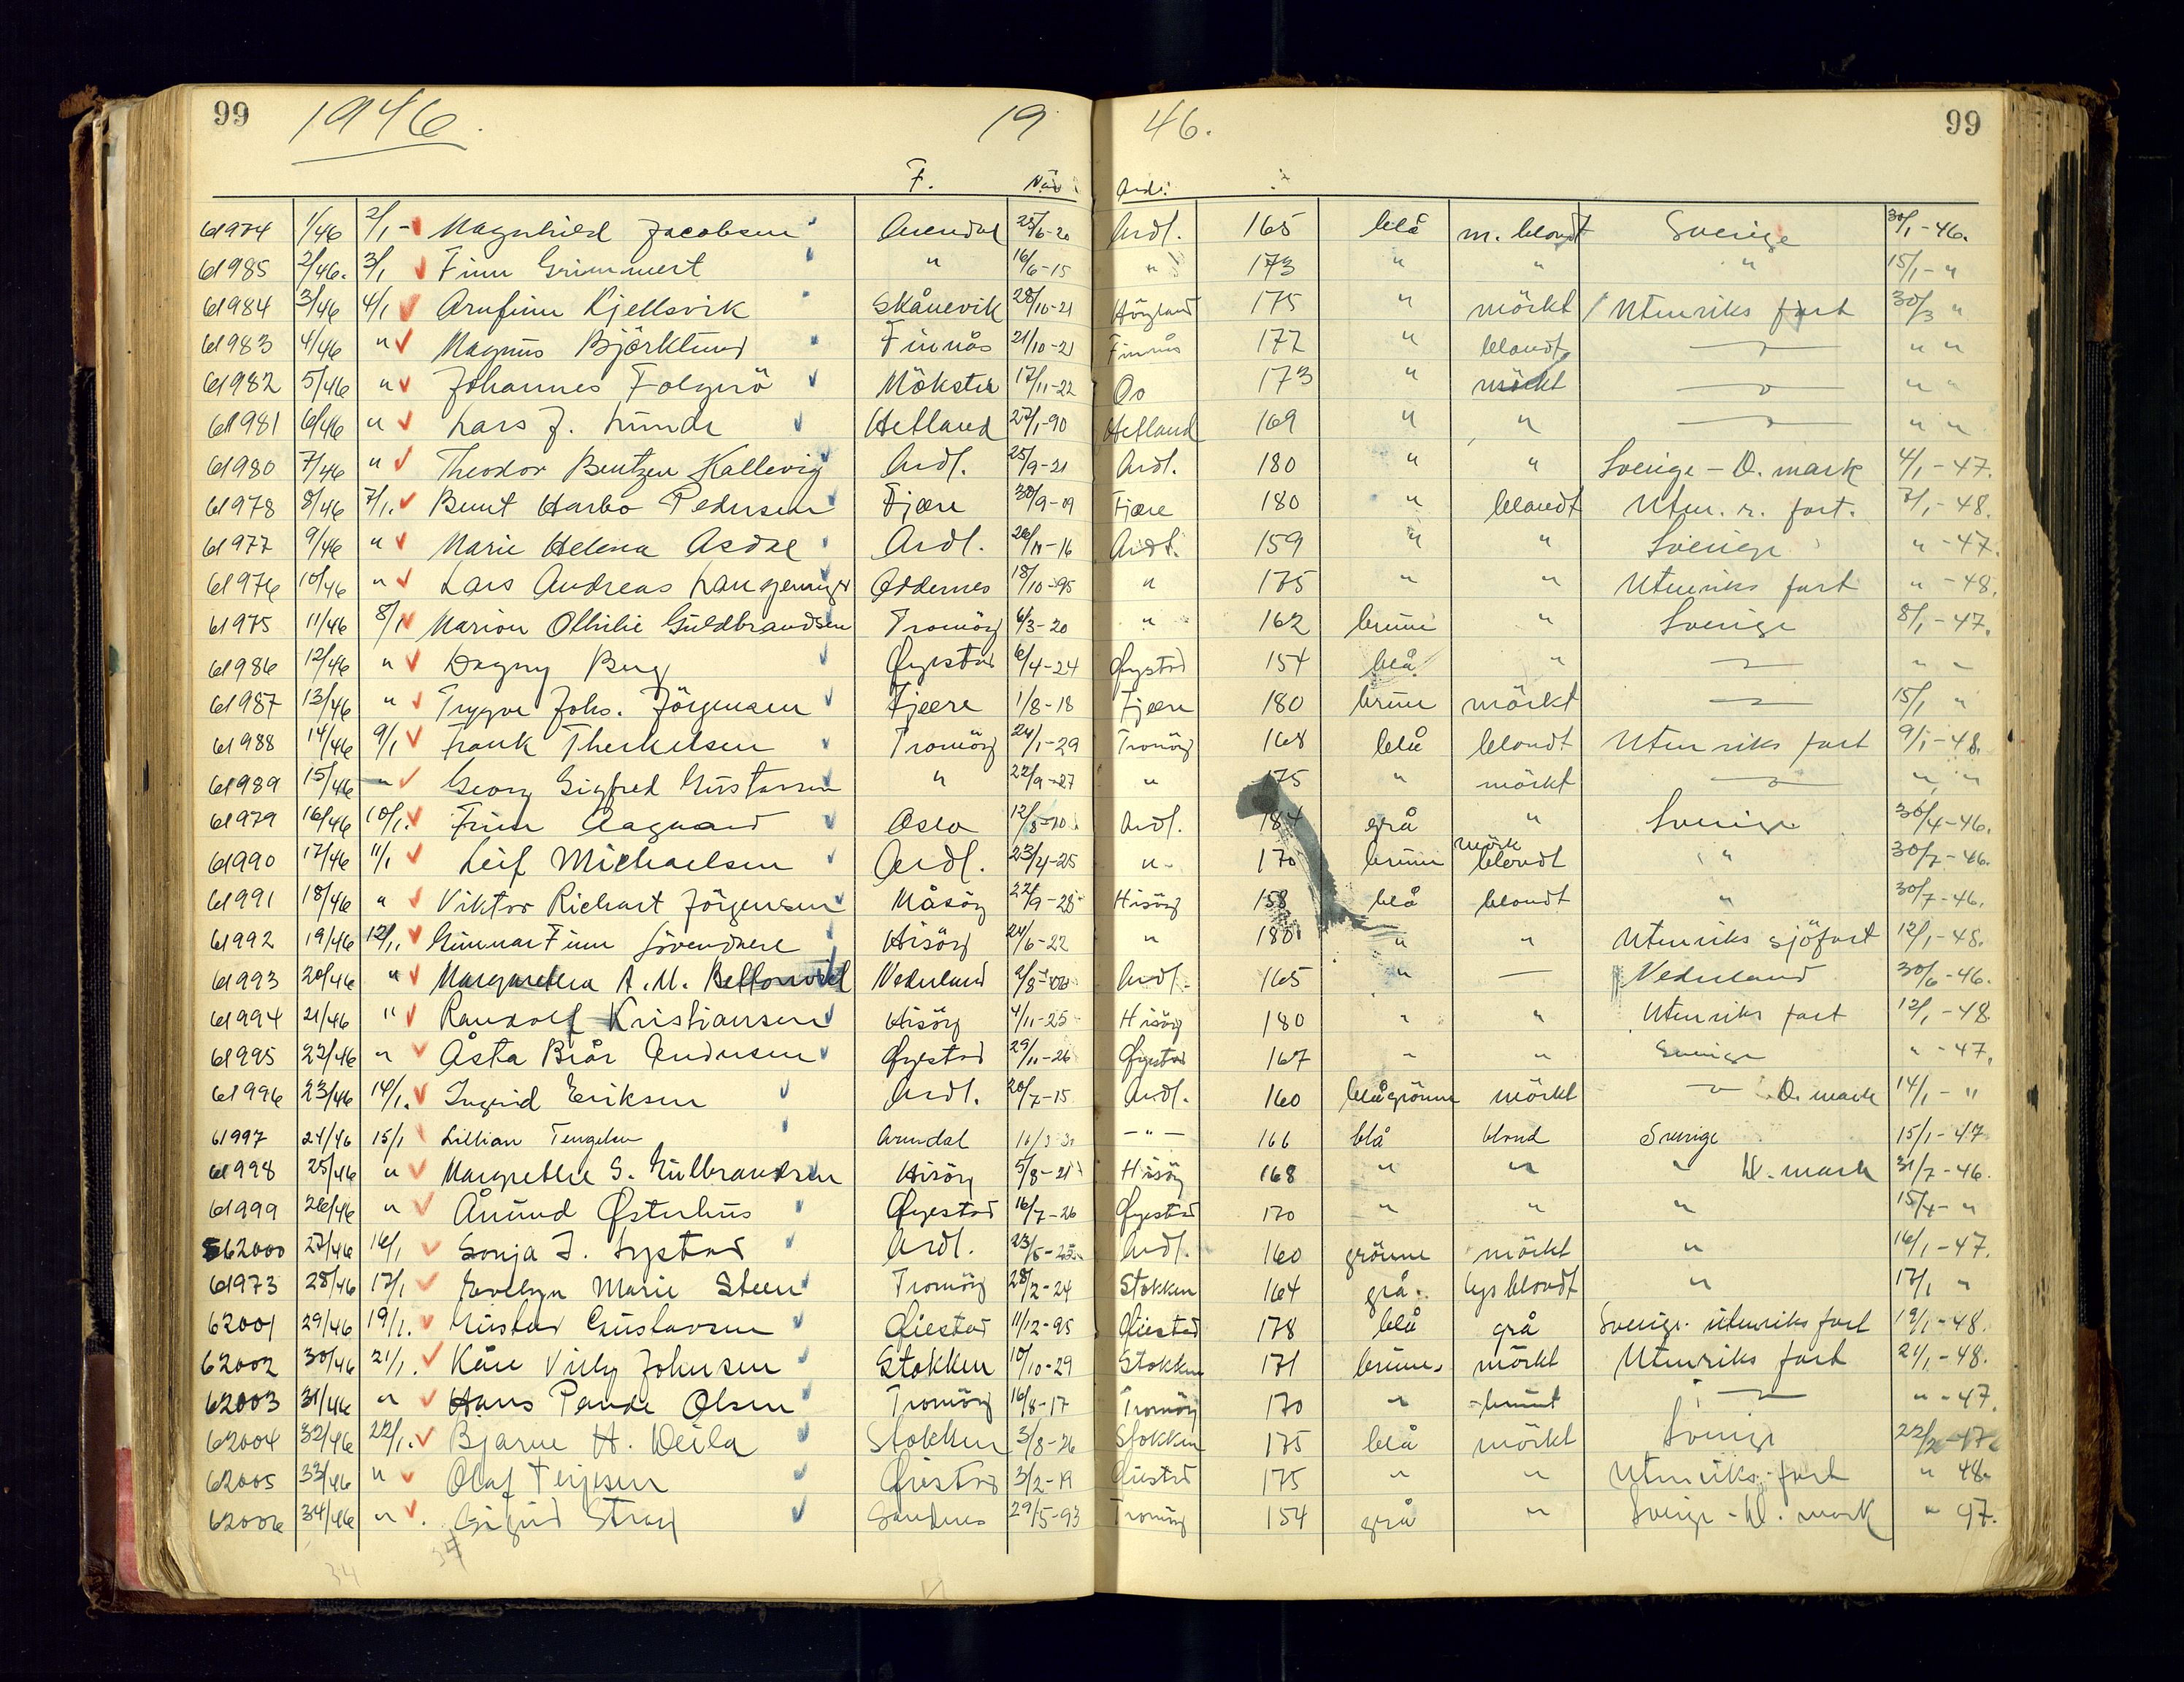 99 1946. 19 46. 99
F. Når
61974 1/46 2/1 - Magnhild Jacobsen Arendal 25/6-20 Ardl. 165 blå m. blondt Sverige 30/1-46.
61985 2/46. 3/1 Finn Grimmert " 16/6-15 " 173 " " " 15/1- "
61984 3/46 4/1 Arnfinn Kjellsvik Skånevik 28/10-21 175 " mörkt Utenriks fart 30/3 "
61983 4/46 " Magnus Björklund Finnås 21/10-21 Finnås 177 " blondt " "
61982 5/46 " Johannes Folgerö Mökster 17/11-22 Do 173 " mörkt " "
61981 6/46 " Lars J. Lunde Hetland 27/1-90 Hetland 169 " " " "
61980 7/46 " Theodor Bentzen Kallevig Ardl. 25/9-21 Ardl. 180 " " Sverige - D. mark 4/1-47.
61978 8/46 7/1. Bernt Harbo Pedersen Fjære 30/9-09 Fjære 180 " blondt Uten. r. fart. 7/1-48.
61977 9/46 " Marie Helena Asdal Ardl. 26/11-16 Ardl. 159 " " Sverige " -47.
61976 10/46 " Lars Andreas Oddernes 18/10-95 " 175 " " Utenriks fart " -48.
61975 11/46 8/1 Marion Othilie Guldbrandsen Tromöy 6/3-20 " 162 brune " Sverige 8/1-47.
61986 12/46 " Dagny Berg Øyestad 6/4-24 Øyestad 154 blå " " "
61987 13/46 " Trygve Johs. Jörgensen Fjære 1/8-18 Fjære 180 brune mörkt 15/1 "
61988 14/46 9/1 Frank Therkelsen Tromöy 24/1-29 Tromöy 168 blå blondt Utenriks fart 9/1-48.
61989 15/46 " Georg Sigfred Gustavsen " 22/9-27 " 175 " mörkt " "
61979 16/46 10/1. Finn Aagaard Oslo Ardl. 184 grå " Sverige 30/4-46.
61990 17/46 11/1 Leif Michaelsen Ardl. 23/4-25 " 170 brune mörk blondt " 30/7-46.
61991 18/46 " Viktor Richart Jörgensen Måsöy 22/9-28 Hisöy 158 blå blondt " 30/7-46.
61992 19/46 12/1. Gunnar Finn Hisöy 24/6-22 " 180 " " Utenriks sjöfart 12/1-48.
61993 20/46 " Margaretha A. M. Nederland Ardl. 165 " — Nederland 30/6-46.
61994 21/46 " Randolf Kristiansen Hisöy 4/11-25 Hisöy 180 " " Utenriks fart 12/1-48
61995 22/46 " Åsta Andersen Øyestad 29/11-26 Øyestad 167 " " Sverige " -47.
61996 23/46 14/1. Ingrid Eriksen Ardl. 20/7-15 Ardl. 160 blågrönne mörkt D. mark 14/1- "
61997 24/46 15/1 Lillian Tengelsen Arendal - " - 166 blå blond Sverige 15/1-47
61998 25/46 " Margrethe S. Gulbrandsen Hisöy 5/8-21 Hisöy 168 " " " D. mark 31/7-46.
61999 26/46 " Åmund Østerhus Øyestad 16/7-26 Øyestad 170 " " " 15/4- "
62000 27/46 16/1 Sonja J. Lystad Ardl. Ardl. 160 grönne mörkt " 16/1-47.
61973 28/46 17/1 Evelyn Marie Steen Tromöy 28/2-24 Stokken 164 grå. lys blondt " 17/1 "
62001 29/46 19/1. Gustav Gustavsen Øiestad 11/12-95 Øiestad 178 blå grå Sverige. utenriks fart 19/1-48.
62002 30/46 21/1. Kåre Villy Johnsen Stokken 10/10-29 Stokken 171 brune. mörkt Utenriks fart 21/1-48.
62003 31/46 " Hans Olsen Tromöy 16/8-17 Tromöy 170 " brunt " -47.
62004 32/46 22/1. Bjarne H. Weila Stokken 3/8-26 Stokken 175 blå mörkt Sverige 22/2-47.
62005 33/46 " Olaf Terjesen Øiestad 3/2-19 Øiestad 175 " " Utenriks-fart " 48.
62006 34/46 " Sigrid Stray Sandnes 29/5-93 Tromöy 154 grå " Sverige - D. mark " 97.
34